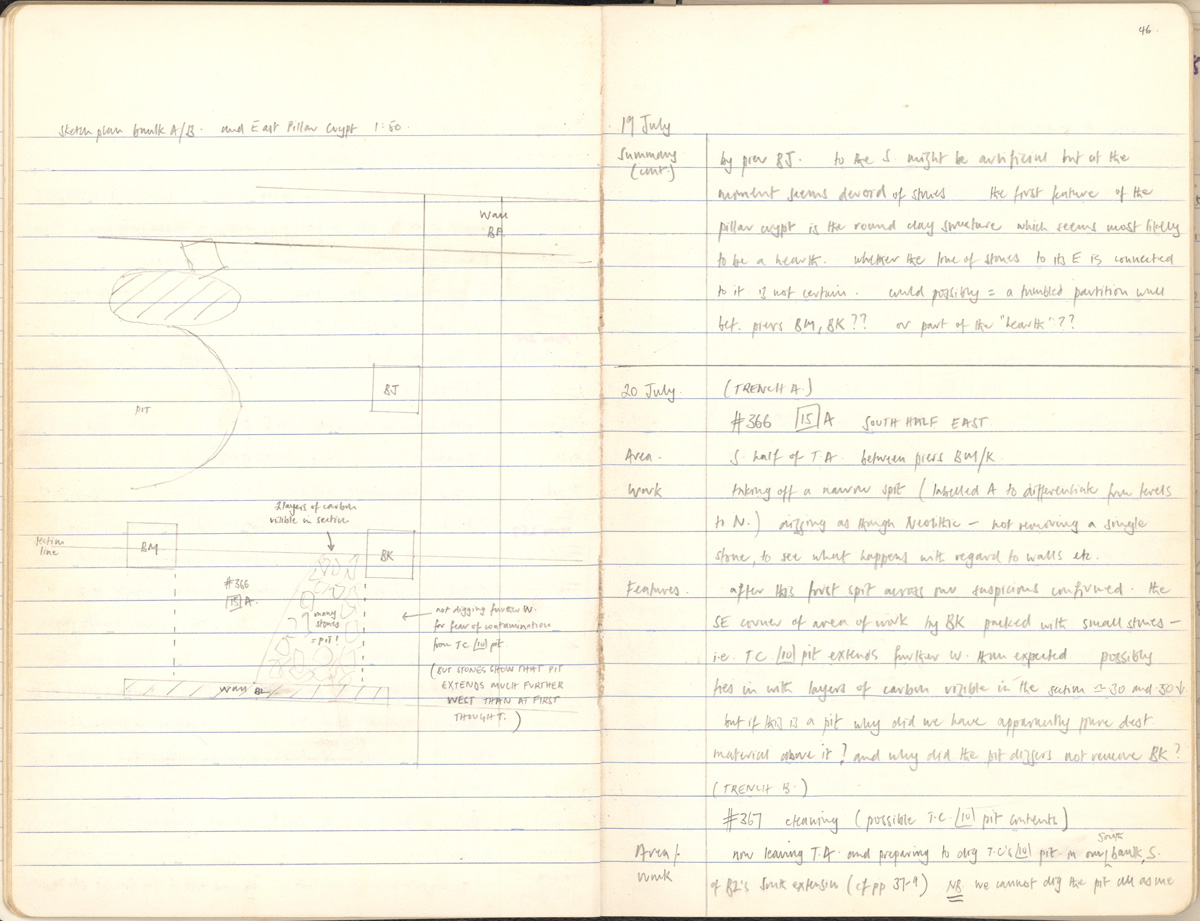 Sketch plan baulk A/B. and East Pillar Crypt 1:50.
Wall
BF
BJ
PIT
2 layers of carbon
visible in section
section
line
BM
BK
#366
[15] A.
many
stones
= pit!
not digging further W.
for fear of contamination
from T.C [10] pit
(BUT STONES SHOW THAT PIT
EXTENDS MUCH FURTHER
WEST THAN AT FIRST
THOUGHT.)
Wall BL
46.
19 July
Summary
(cont.)
by pier BJ. to the S. might be artificial but at the
moment seems devoid of stones the first feature of the
pillar crypt is the round clay structure which seems most likely
to be a hearth. whether the line of stones to its E is connected
to it is not certain. could possibly = a tumbled partition wall
bet. piers BM, BK?? or part of the "hearth"??
20 July. (TRENCH A.)
#366 [15] A SOUTH HALF EAST
Area. S. half of T.A. between piers BM/K.
Work taking off a narrow spit (labelled A to differentiate from levels
to N.) digging as though Neolithic – not removing a single
stone, to see what happens with regard to walls etc.
Features. after this first spit across our suspicions confirmed. the
SE corner of area of work by BK packed with small stones –
i.e. T.C [10] pit extends further W. than expected possibly
ties in with layers of carbon visible in the section ≃ 30 and 50 ↓
but if this is a pit why did we have apparently pure dest.
material above it? and why did the pit diggers not remove BK?
(TRENCH B.)
#367 cleaning (possible T.C. [10] pit contents)
Area/. now leaving T.A. and preparing to dig T.C's [10] pit in our South baulk, S.
Work of B2's South extension (cf pp 37-9) NB we cannot dig the pit all as one